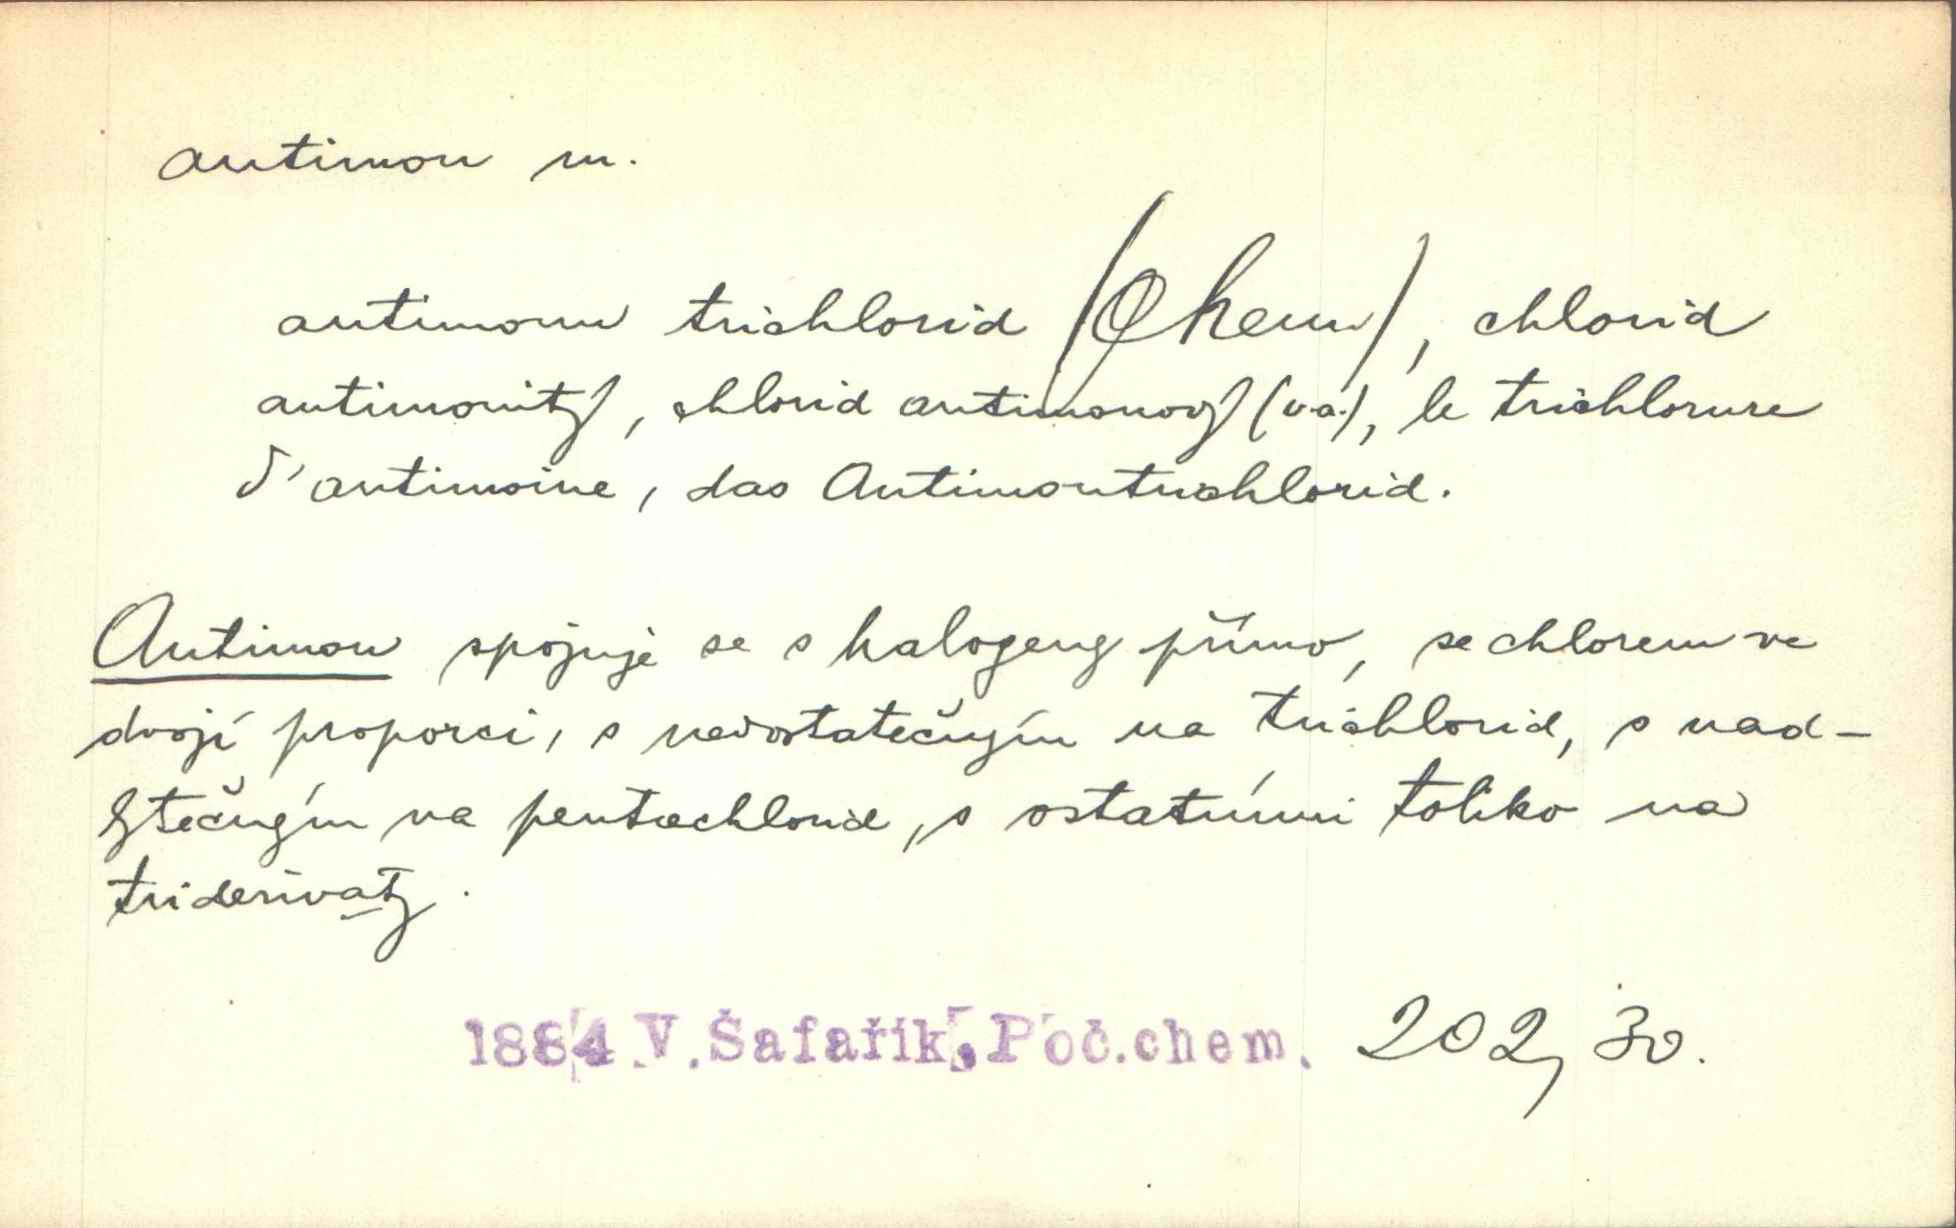 antimon m.
antimonu trichlorid (Chem), chlorid
antimonitý, chlorid antimonový (v.a.), le trichlorure
d'antimoine, das Antimontrichlorid.
Antimon spojuje se s halogeny přímo, se chlorem ve
dvojí proporci, s nedostatečným na trichlorid, s nad-
bytečným na pentachlorid, s ostatními toliko na
triderivaty.
1884 V. Šafařík, Poč.chem. 202, 30.